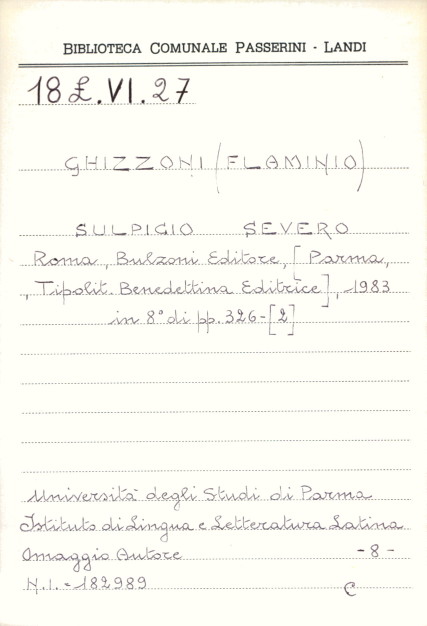 BIBLIOTECA COMUNALE PASSERINI - LANDI
18 £.VI.27
GHIZZONI (FLAMINIO)
SULPICIO SEVERO
Roma, Bulzoni Editore, [Parma,
, Tipolit. Benedettina Editrice], 1983
in 8° di pp. 326-[2]
Università degli Studi di Parma
Istituto di Lingua e Letteratura Latina
Omaggio Autore - 8 -
N.I. = 182989 C